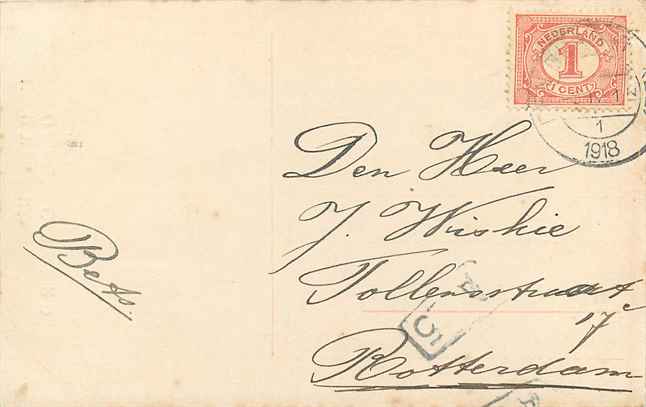 NEDERLAND
1
1 CENT
1
1918
Den Heer
J. Wishie
Tollensstraat
17c
Rotterdam
Bets.